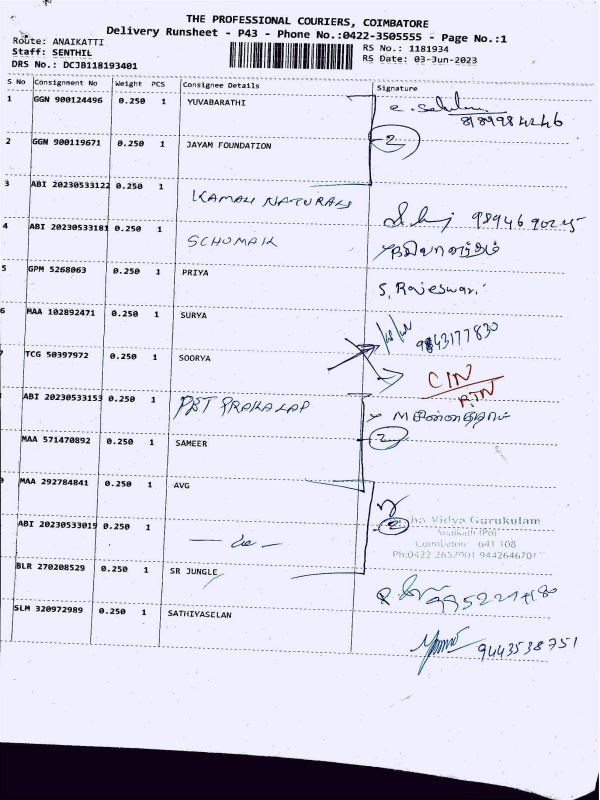 THE PROFESSIONAL COURIERS, COIMBATORE
Delivery Runsheet - P43 - Phone No.:0422-3505555 - Page No.:1
Route: ANAIKATTI
Staff: SENTHIL
DRS No.: DCJB118193401
RS No.: 1181934
RS Date: 03-Jun-2023
S No Consignment No Weight PCS Consignee Details Signature
1 GGN 900124496 0.250 1 YUVABARATHI
2 GGN 900119671 0.250 1 JAYAM FOUNDATION 2
3 ABI 20230533122 0.250 1 KAMALI NATURALS
4 ABI 20230533181 0.250 1 SCHUMAK
5 GPM 5268063 0.250 1 PRIYA S. Rajeswari
6 MAA 102892471 0.250 1 SURYA 9843177830
TCG 50397972 0.250 1 SOORYA CIN
RTN
ABI 20230533153 0.250 1
MAA 571470892 0.250 1 SAMEER 2
MAA 292784841 0.250 1 AVG
ABI 20230533019 0.250 1 2
Vidya Gurukulam
Anaikatti (Po)
Coimbatore 641 108
BLR 270208529 0.250 1 SR JUNGLE
SLM 320972989 0.250 1 SATHIYASELAN
9443538751